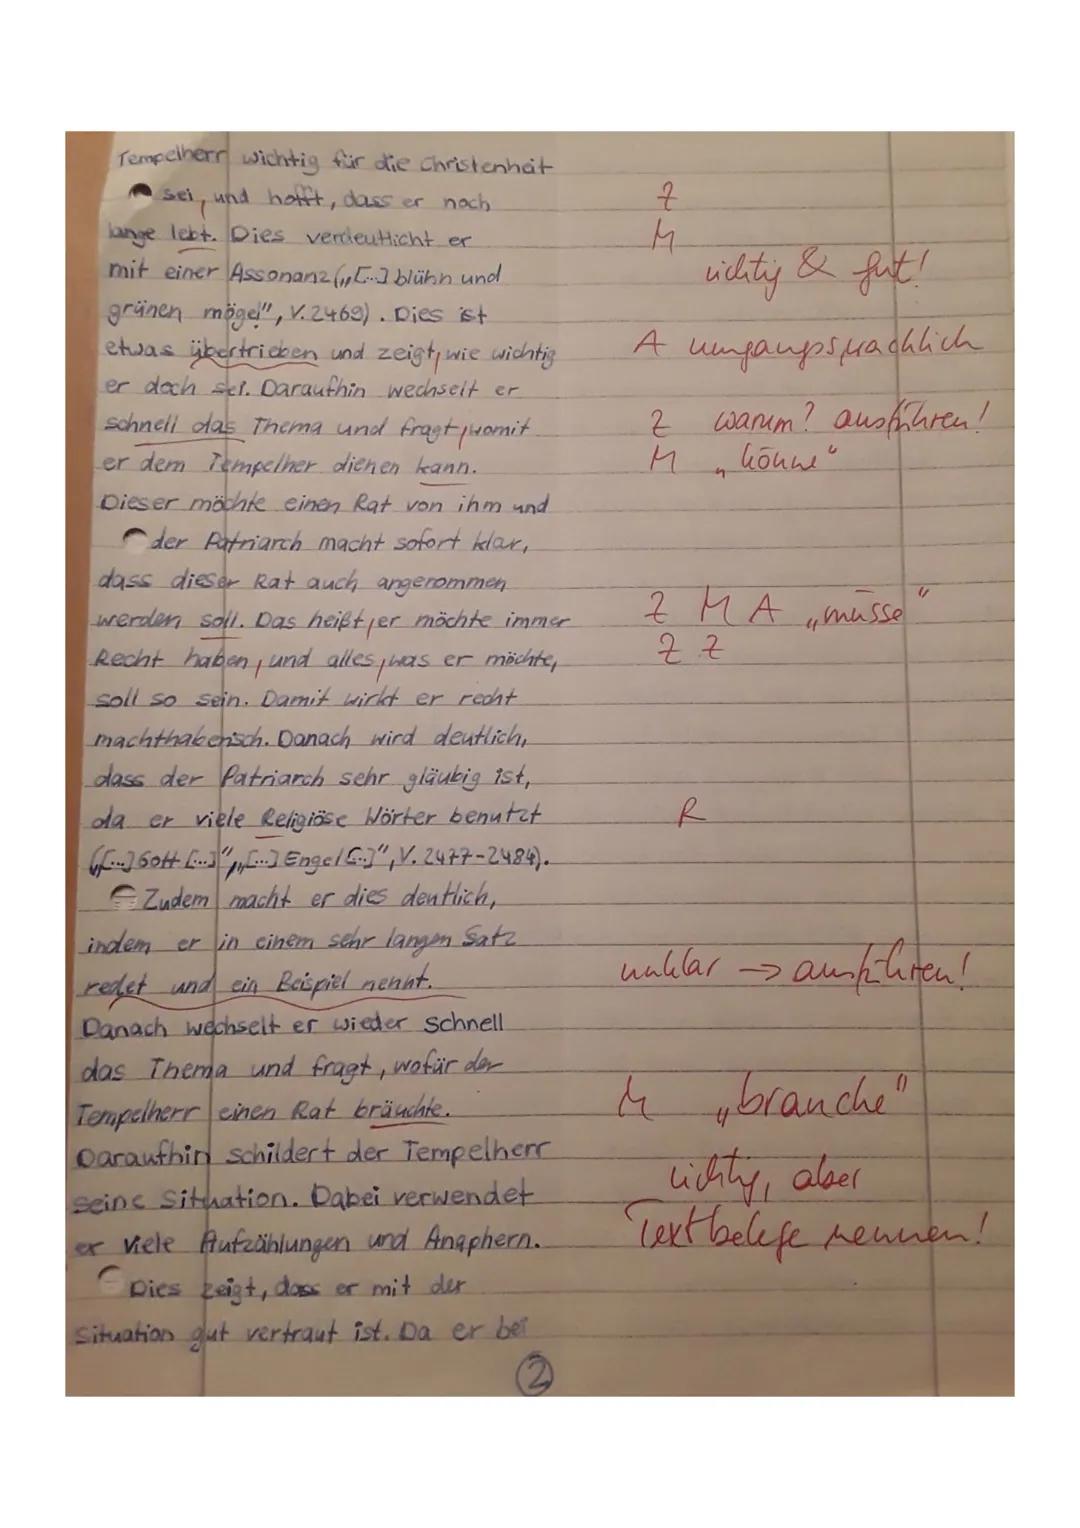 Tempelherr wichtig für die Christenheit
sei, und hofft, dass er noch Z
lange lebt. Dies verdeutlicht er M
mit einer Assonanz („[...] blühn und richtig & gut!
grünen möge!", V. 2469). Dies ist
etwas übertrieben und zeigt, wie wichtig A umgangssprachlich
er doch sei. Daraufhin wechselt er
schnell das Thema und fragt, womit Z warum? ausführen!
er dem Tempelher dienen kann. M „könne"
Dieser möchte einen Rat von ihm und
der Patriarch macht sofort klar,
dass dieser Rat auch angenommen
werden soll. Das heißt, er möchte immer Z M A „müsse"
Recht haben, und alles, was er möchte, Z Z
soll so sein. Damit wirkt er recht
machthaberisch. Danach wird deutlich,
dass der Patriarch sehr gläubig ist,
da er viele Religiöse Wörter benutzt R
(„[...] Gott [...]", „[...] Engel [...]", V. 2477-2484).
Zudem macht er dies deutlich,
indem er in einem sehr langen Satz
redet und ein Beispiel nennt. unklar → ausführen!
Danach wechselt er wieder schnell
das Thema und fragt, wofür der
Tempelherr einen Rat bräuchte. M „brauche"
Daraufhin schildert der Tempelherr
seine Situation. Dabei verwendet richtig, aber
er viele Aufzählungen und Anaphern. Textbelege nennen!
Dies zeigt, dass er mit der
Situation gut vertraut ist. Da er bei
2